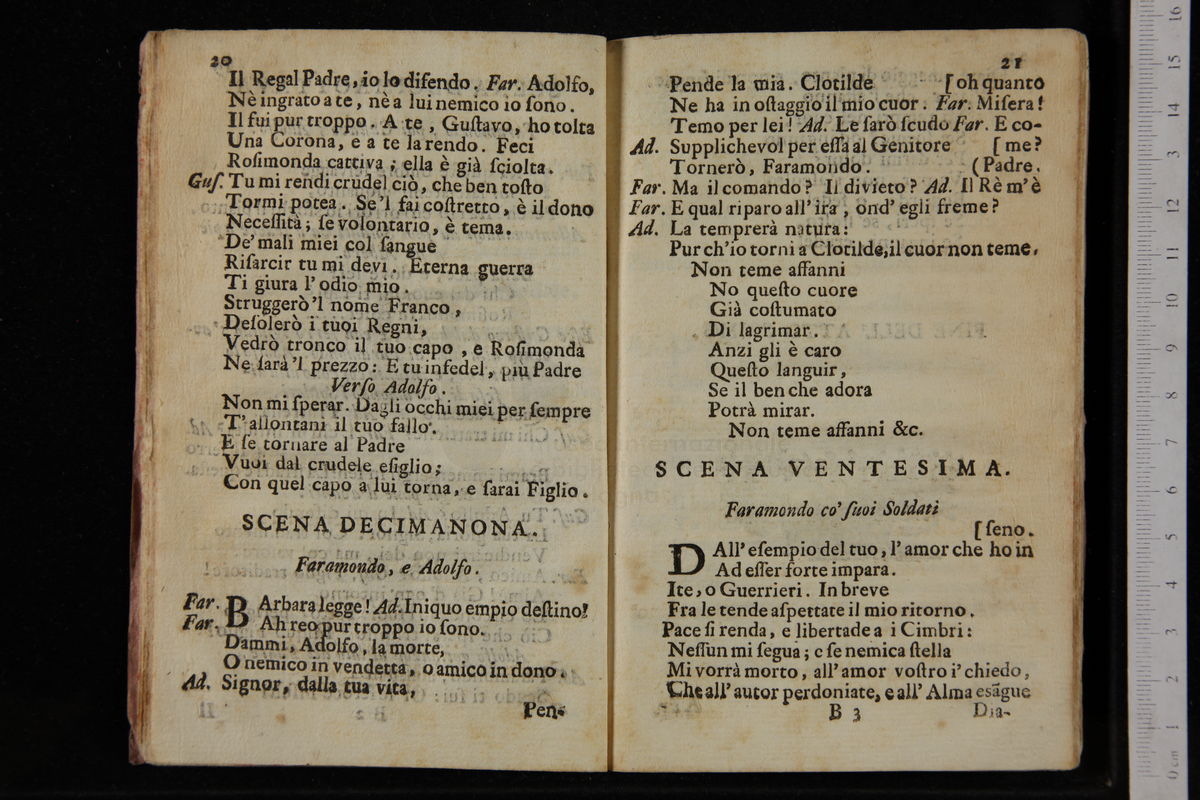 20
Il Regal Padre, io lo difendo. Far. Adolfo,
Nè ingrato a te, nè a lui nemico io ſono.
Il fui pur troppo. A te, Guſtavo, ho tolta
Una Corona, e a te la rendo. Feci
Roſimonda cattiva; ella è già ſciolta.
Guſ. Tu mi rendi crudel ciò, che ben toſto
Tormi potea. Se'l fai coſtretto, è il dono
Neceſſità; ſe volontario, è tema.
De' mali miei col ſangue
Riſarcir tu mi devi. Eterna guerra
Ti giura l'odio mio.
Struggerò'l nome Franco,
Deſolerò i tuoi Regni,
Vedrò tronco il tuo capo, e Roſimonda
Ne ſarà'l prezzo: E tu infedel, più Padre
Verſo Adolfo.
Non mi ſperar. Dagli occhi miei per ſempre
T'allontani il tuo fallo.
E ſe tornare al Padre
Vuoi dal crudele eſiglio;
Con quel capo a lui torna, e ſarai Figlio.
SCENA DECIMANONA.
Faramondo, e Adolfo.
Far. BArbara legge! Ad. Iniquo empio deſtino!
Far. Ah reo pur troppo io ſono.
Dammi, Adolfo, la morte,
O nemico in vendetta, o amico in dono.
Ad. Signor, dalla tua vita,
Pen-
21
Pende la mia. Clotilde [oh quanto
Ne ha in oſtaggio il mio cuor. Far. Miſera!
Temo per lei! Ad. Le ſarò ſcudo Far. E co-
Ad. Supplichevol per eſſa al Genitore [me?
Tornerò, Faramondo. (Padre.
Far. Ma il comando? Il divieto? Ad. Il Rè m'è
Far. E qual riparo all'ira, ond'egli freme?
Ad. La temprerà natura:
Pur ch'io torni a Clotilde, il cuor non teme.
Non teme affanni
No queſto cuore
Già coſtumato
Di lagrimar.
Anzi gli è caro
Queſto languir,
Se il ben che adora
Potrà mirar.
Non teme affanni &c.
SCENA VENTESIMA.
Faramondo co' ſuoi Soldati
[ſeno.
DAll' eſempio del tuo, l'amor che ho in
Ad eſſer forte impara.
Ite, o Guerrieri. In breve
Fra le tende aſpettate il mio ritorno.
Pace ſi renda, e libertade a i Cimbri:
Neſſun mi ſegua; e ſe nemica ſtella
Mi vorrà morto, all'amor voſtro i' chiedo,
Che all'autor perdoniate, e all'Alma esāgue
B 3
Dia-